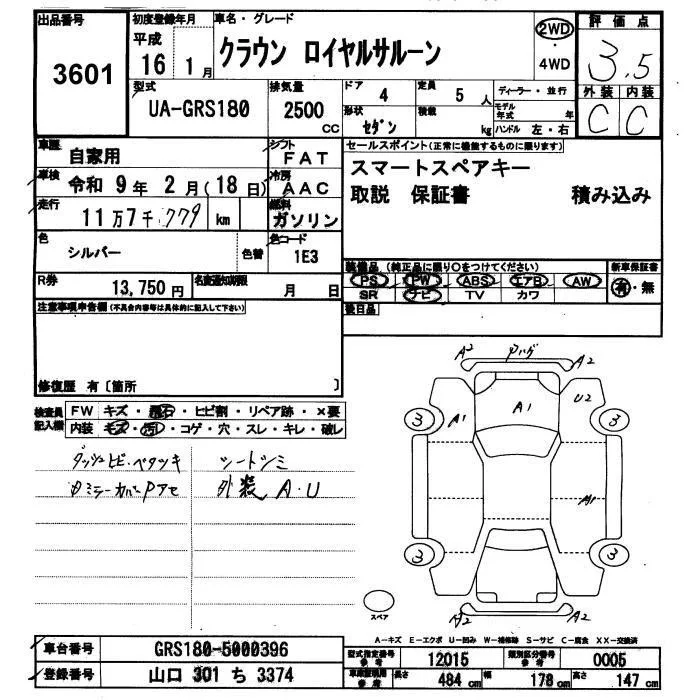 出品番号 初度登録年月 車名・グレード 評価点
3601 平成 16 1月 クラウン ロイヤルサルーン 2WD・4WD 3.5
型式 排気量 ドア 定員 ディーラー・並行 外装 内装
UA-GRS180 2500 cc 4 5人 モデル年式 年 C C
形状 積載 ハンドル 左・右
セダン kg
車歴 自家用 シフト FAT セールスポイント(正常に機能するものに限ります)
車検 令和 9年 2月(18日) 冷房 AAC スマートスペアキー
走行 11万7千779 km 燃料 ガソリン 取説 保証書 積み込み
色 シルバー 色替 色コード 1E3
装備品 (純正品に限り○をつけてください) 新車保証書
R券 13,750円 名義通知期限 月 日 PS PW ABS エアB AW 有・無
SR ナビ TV カワ
注意事項申告欄(不具合内容等は具体的に記入して下さい) 後日品
修復歴 有〔箇所 〕
検査員記入欄 FW キズ・飛石・ヒビ割・リペア跡・×要
内装 キズ・汚・コゲ・穴・スレ・キレ・破レ
ダッシュヒビ・ベタツキ シートシミ
ミラーカバーPアセ 外装 A・U
A2 A2
A1 A1 U2
3 3
A1
3 3
A2 A2
スペア
A-キズ E-エクボ U-凹み W-補修跡 S-サビ C-腐食 XX-交換済
車台番号 GRS180-5000396 型式指定番号 参考 12015 類別区分番号 参考 0005
登録番号 山口 301 ち 3374 参考 長さ 484cm 幅 178cm 高さ 147cm